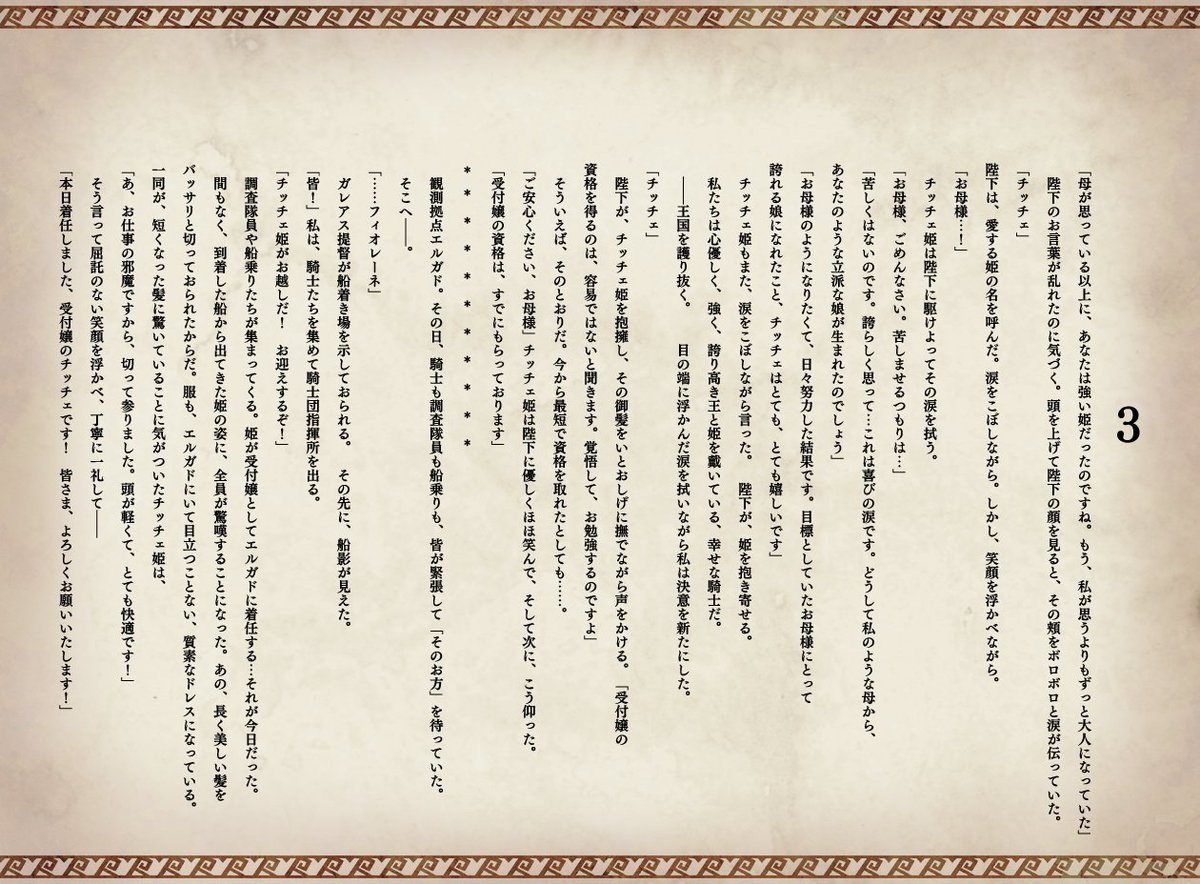 3
「母が思っている以上に、あなたは強い姫だったのですね。もう、私が思うよりもずっと大人になっていた」
陛下のお言葉が乱れたのに気づく。頭を上げて陛下の顔を見ると、その頬をボロボロと涙が伝っていた。
「チッチェ」
陛下は、愛する姫の名を呼んだ。涙をこぼしながら。しかし、笑顔を浮かべながら。
「お母様…！」
チッチェ姫は陛下に駆けよってその涙を拭う。
「お母様、ごめんなさい。苦しませるつもりは…」
「苦しくはないのです。誇らしく思って…これは喜びの涙です。どうして私のような母から、
あなたのような立派な娘が生まれたのでしょう」
「お母様のようになりたくて、日々努力した結果です。目標としていたお母様にとって
誇れる娘になれたこと、チッチェはとても、とても嬉しいです」
チッチェ姫もまた、涙をこぼしながら言った。　陛下が、姫を抱き寄せる。
私たちは心優しく、強く、誇り高き王と姫を戴いている、幸せな騎士だ。
――王国を護り抜く。　目の端に浮かんだ涙を拭いながら私は決意を新たにした。
「チッチェ」
陛下が、チッチェ姫を抱擁し、その御髪をいとおしげに撫でながら声をかける。　「受付嬢の
資格を得るのは、容易ではないと聞きます。覚悟して、お勉強するのですよ」
そういえば、そのとおりだ。今から最短で資格を取れたとしても……。
「ご安心ください、お母様」チッチェ姫は陛下に優しくほほ笑んで、そして次に、こう仰った。
「受付嬢の資格は、すでにもらっております」
＊＊＊＊＊＊＊＊＊＊＊＊
観測拠点エルガド。その日、騎士も調査隊員も船乗りも、皆が緊張して「そのお方」を待っていた。
そこへ――。
「……フィオレーネ」
ガレアス提督が船着き場を示しておられる。　その先に、船影が見えた。
「皆！」私は、騎士たちを集めて騎士団指揮所を出る。
「チッチェ姫がお越しだ！　お迎えするぞ！」
調査隊員や船乗りたちが集まってくる。姫が受付嬢としてエルガドに着任する…それが今日だった。
間もなく、到着した船から出てきた姫の姿に、全員が驚嘆することになった。あの、長く美しい髪を
バッサリと切っておられたからだ。服も、エルガドにいて目立つことない、質素なドレスになっている。
一同が、短くなった髪に驚いていることに気がついたチッチェ姫は、
「あ、お仕事の邪魔ですから、切って参りました。頭が軽くて、とても快適です！」
そう言って屈託のない笑顔を浮かべ、丁寧に一礼して――
「本日着任しました、受付嬢のチッチェです！　皆さま、よろしくお願いいたします！」